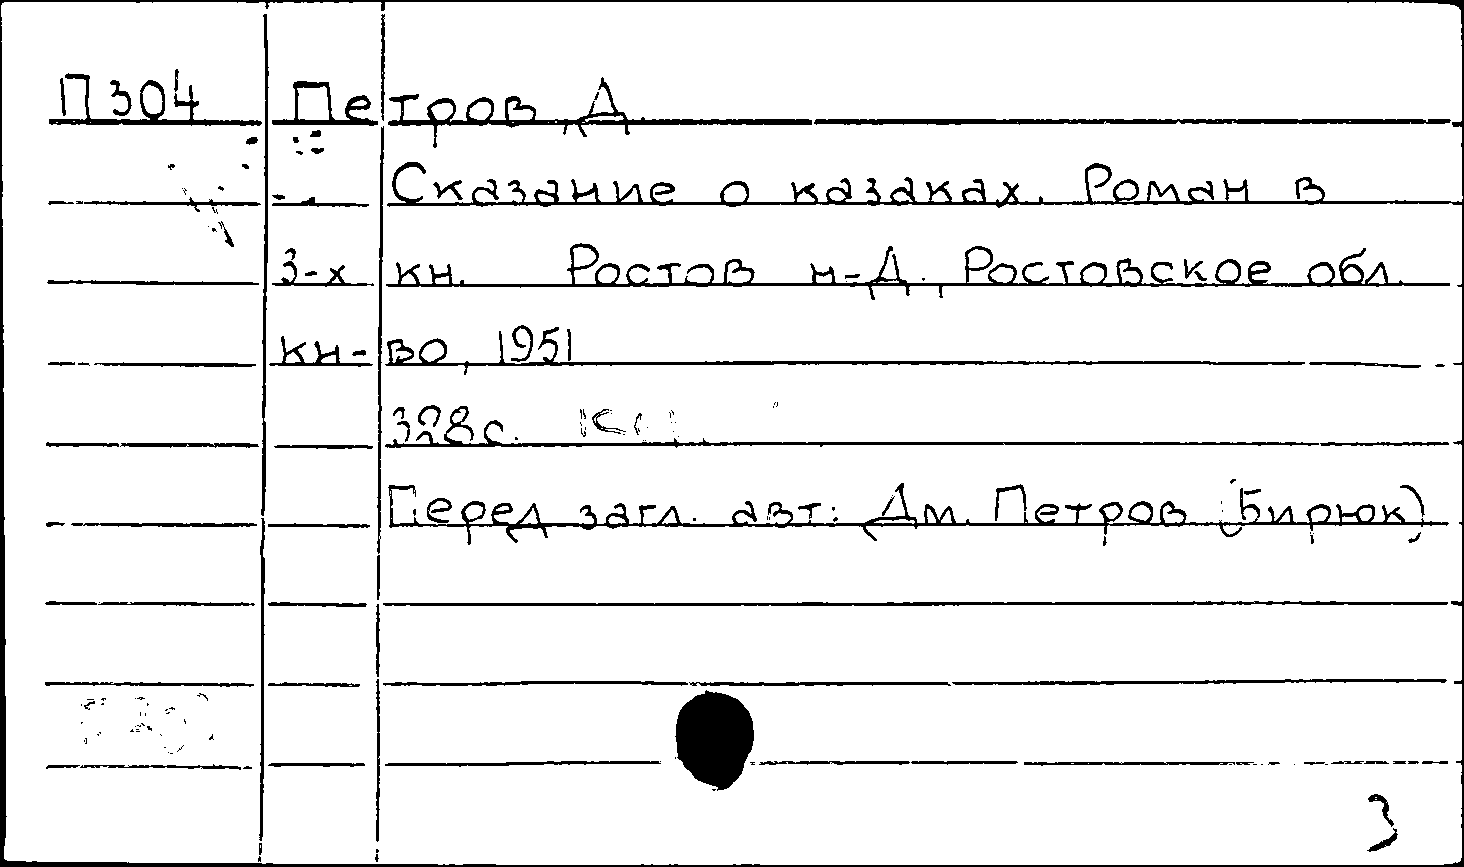 П304 Петров, Д.
Сказание о казаках. Роман в
3-х кн. Ростов н-Д., Ростовское обл.
кн-во, 1951
328с.
Перед загл. авт: Дм. Петров (Бирюк)
3